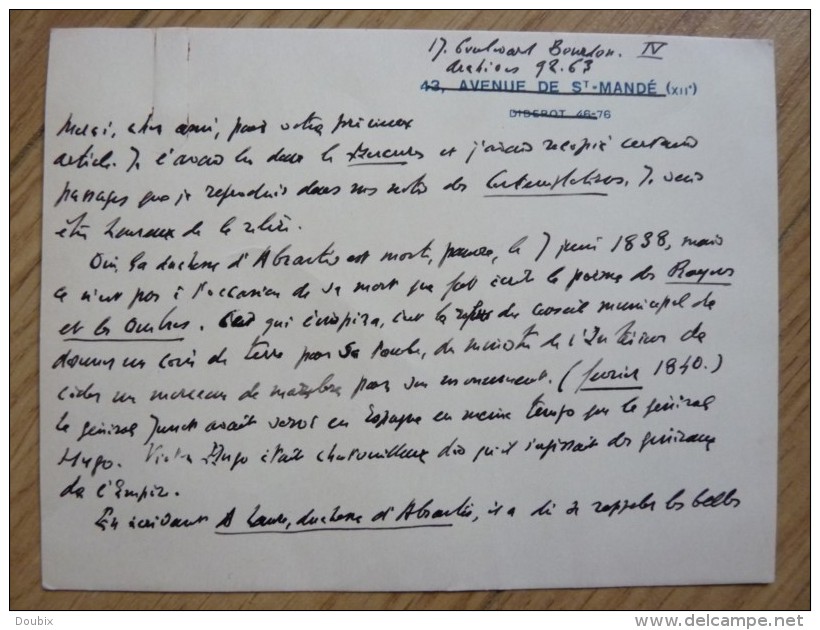 17, boulevard Bourdon. IV
Archives 92.63
43, AVENUE DE ST-MANDÉ (XIIe)
DIDEROT 46-76
Merci, cher ami, pour votre précieux
article. Je l'avais lu dans le Mercure et j'avais recopié certains
passages que je reproduis dans nos notes des Contemplations. Je vais
être heureux de le relire.
Oui la duchesse d'Abrantès est morte, pauvre, le 7 juin 1838, mais
ce n'est pas à l'occasion de sa mort que fut écrit le poème des Rayons
et les Ombres. Ce qui l'inspira, c'est le refus du conseil municipal de
donner un coin de terre pour sa tombe, du ministre de l'Intérieur de
céder un morceau de marbre pour son monument. (février 1840.)
Le général Junot avait servi en Espagne en même temps que le général
Hugo. Victor Hugo était chatouilleux dès qu'il s'agissait des généraux
de l'Empire.
En écrivant A Laure, duchesse d'Abrantès, il a dû se rappeler les belles
Doubix
www.delcampe.net